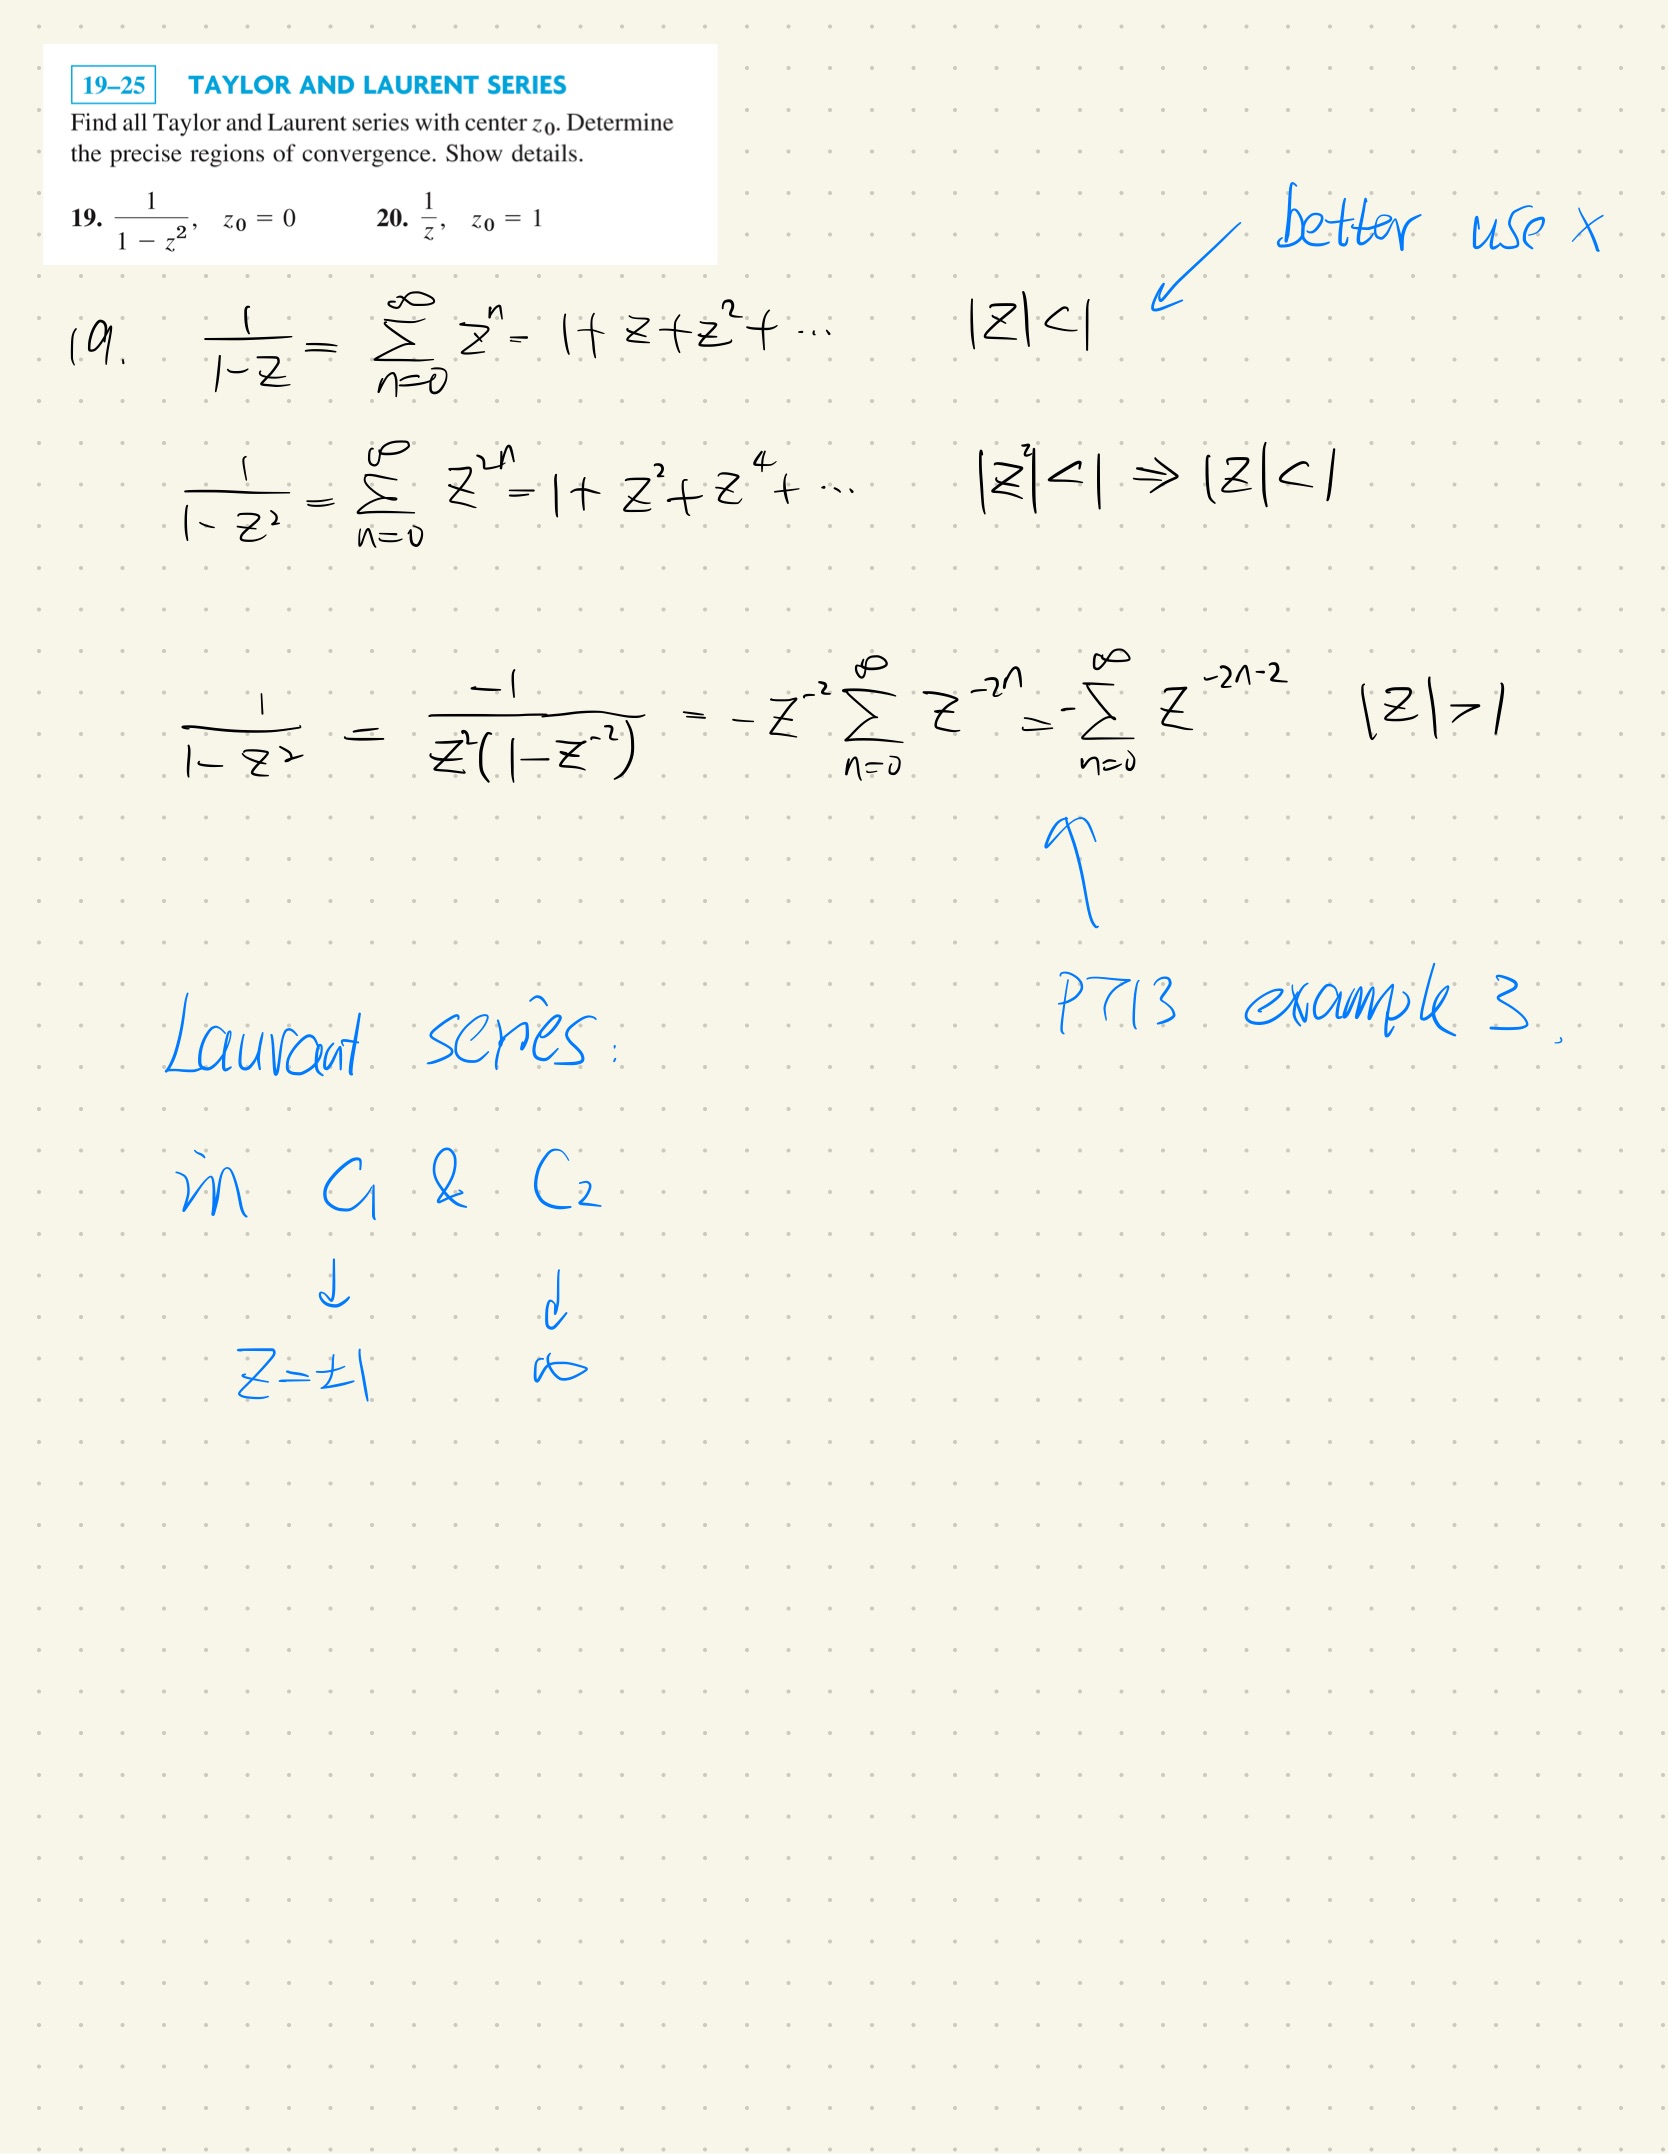 19–25 TAYLOR AND LAURENT SERIES
Find all Taylor and Laurent series with center z₀. Determine
the precise regions of convergence. Show details.
19. 1/(1 − z²), z₀ = 0 20. 1/z, z₀ = 1
better use x
19. 1/(1-z) = ∑_{n=0}^{∞} zⁿ = 1+z+z²+... |z|<1
1/(1-z²) = ∑_{n=0}^{∞} z²ⁿ = 1+z²+z⁴+... |z²|<1 ⇒ |z|<1
1/(1-z²) = -1/(z²(1-z⁻²)) = -z⁻² ∑_{n=0}^{∞} z⁻²ⁿ = -∑_{n=0}^{∞} z⁻²ⁿ⁻² |z|>1
P713 example 3.
Laurant series:
in C₁ & C₂
↓ ↓
z=±1 ∞